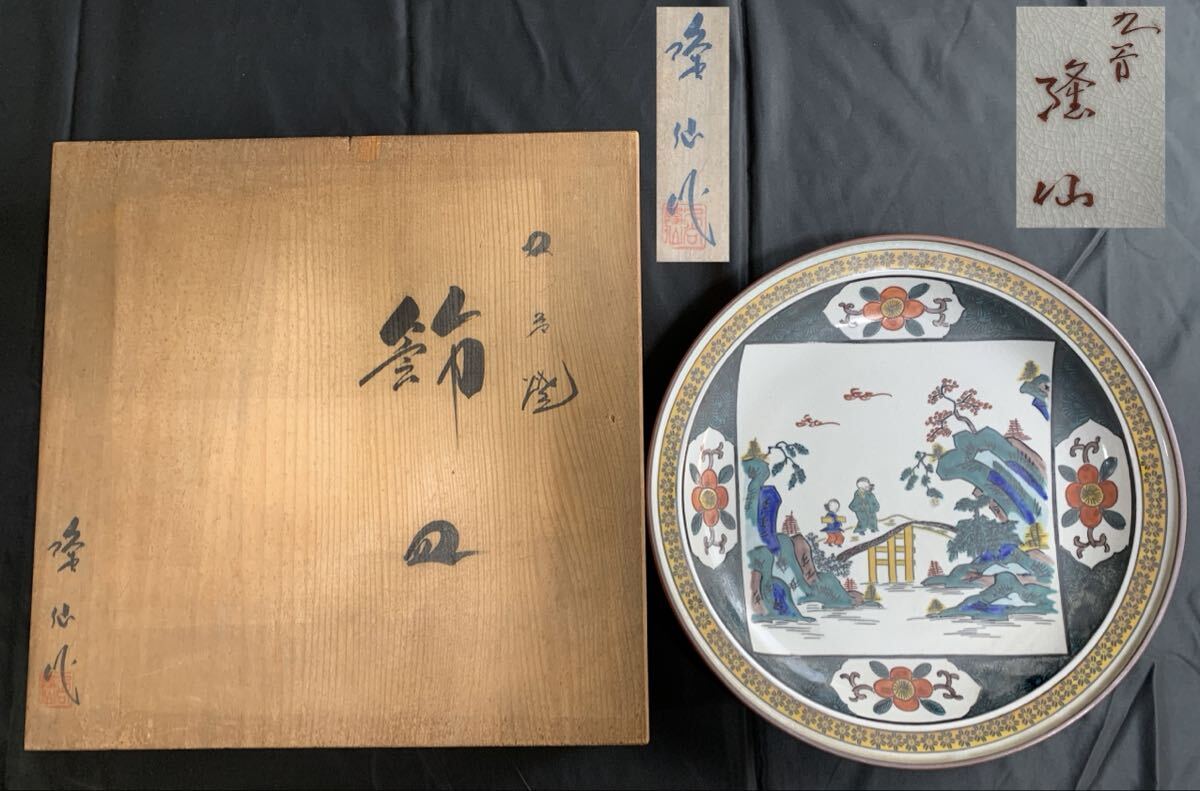 九谷焼
飾皿
隆仙作
隆仙作
九谷
隆仙